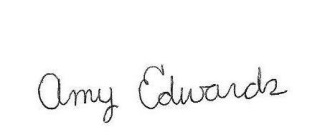 Amy Edwards